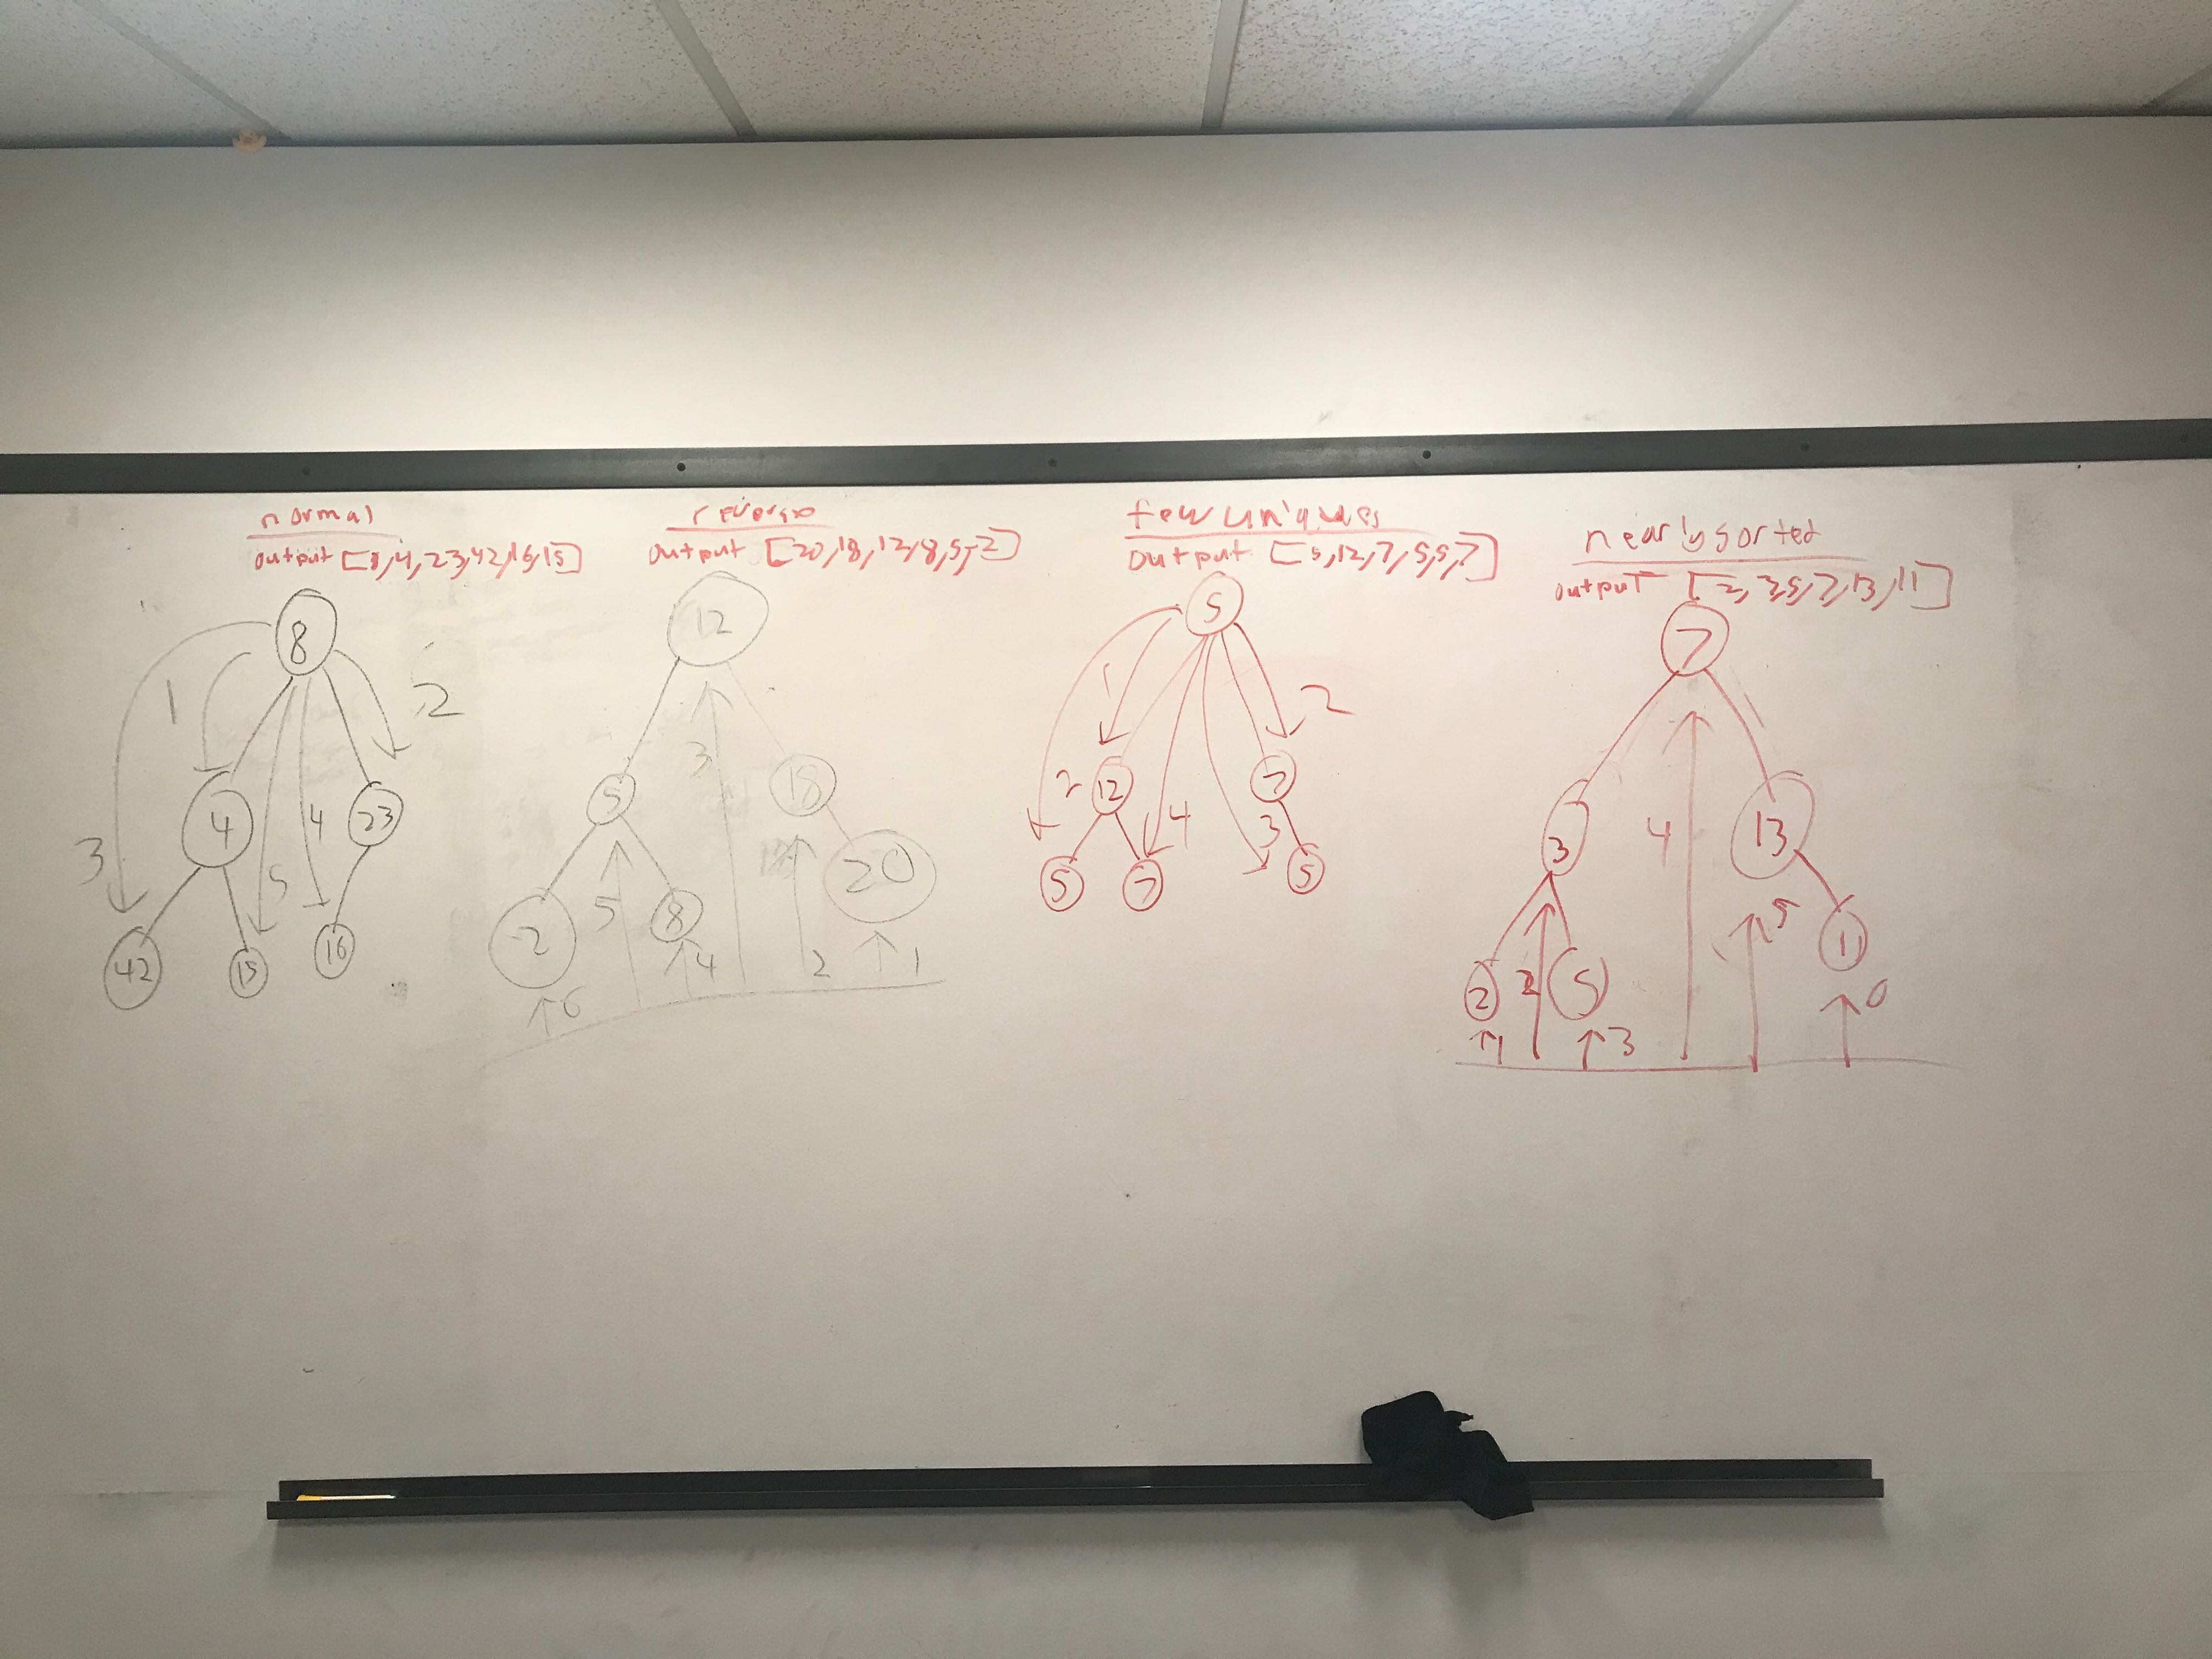 normal
output [8,4,23,42,16,15]
8
1
2
4
23
3
4
5
42
15
16
reverse
output [20,18,12,8,5,-2]
12
3
5
18
20
-2
5
8
4
2
1
6
few uniques
output [5,12,7,5,5,7]
5
1
2
12
7
2
4
3
5
7
5
nearly sorted
output [2,3,5,7,13,11]
7
3
4
13
5
11
2
2
5
1
3
6